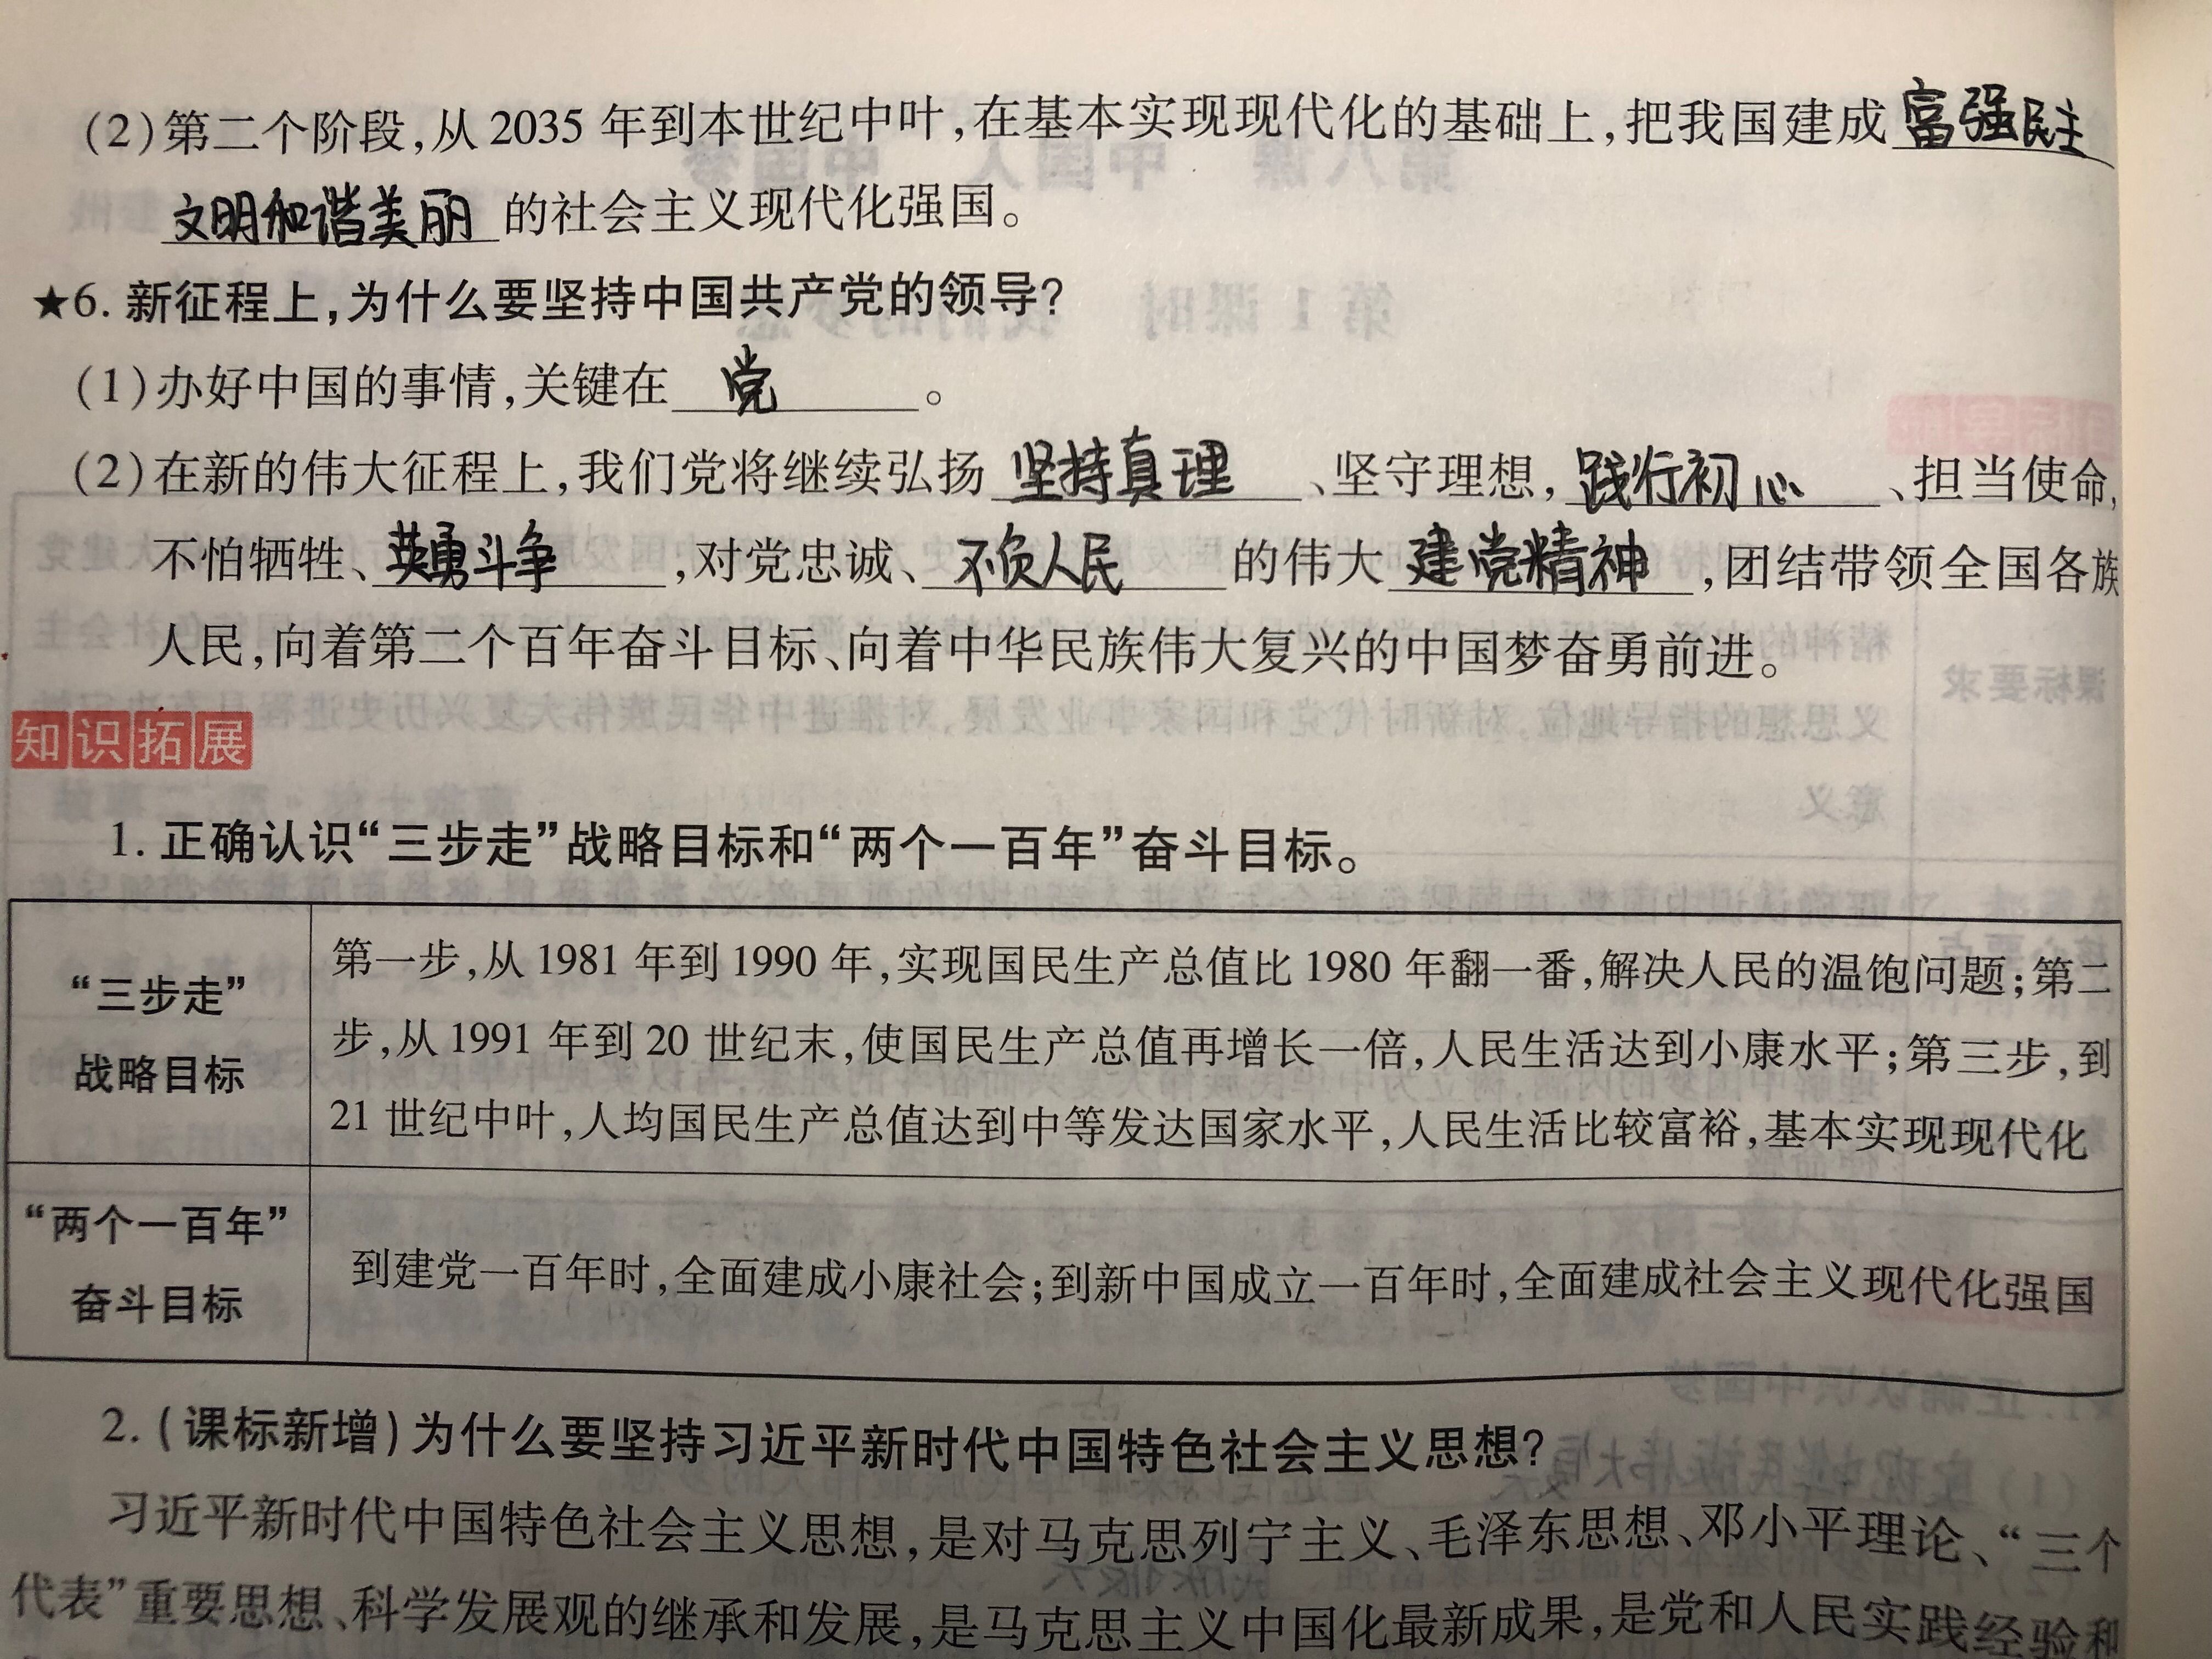 (2)第二个阶段,从2035年到本世纪中叶,在基本实现现代化的基础上,把我国建成富强民主
文明和谐美丽的社会主义现代化强国。
★6.新征程上,为什么要坚持中国共产党的领导?
(1)办好中国的事情,关键在党。
(2)在新的伟大征程上,我们党将继续弘扬坚持真理、坚守理想,践行初心、担当使命,
不怕牺牲、英勇斗争,对党忠诚、不负人民的伟大建党精神,团结带领全国各族
人民,向着第二个百年奋斗目标、向着中华民族伟大复兴的中国梦奋勇前进。
知识拓展
1.正确认识“三步走”战略目标和“两个一百年”奋斗目标。
“三步走”
战略目标
第一步,从1981年到1990年,实现国民生产总值比1980年翻一番,解决人民的温饱问题;第二
步,从1991年到20世纪末,使国民生产总值再增长一倍,人民生活达到小康水平;第三步,到
21世纪中叶,人均国民生产总值达到中等发达国家水平,人民生活比较富裕,基本实现现代化
“两个一百年”
奋斗目标
到建党一百年时,全面建成小康社会;到新中国成立一百年时,全面建成社会主义现代化强国
2.(课标新增)为什么要坚持习近平新时代中国特色社会主义思想?
习近平新时代中国特色社会主义思想,是对马克思列宁主义、毛泽东思想、邓小平理论、“三个
代表”重要思想、科学发展观的继承和发展,是马克思主义中国化最新成果,是党和人民实践经验和